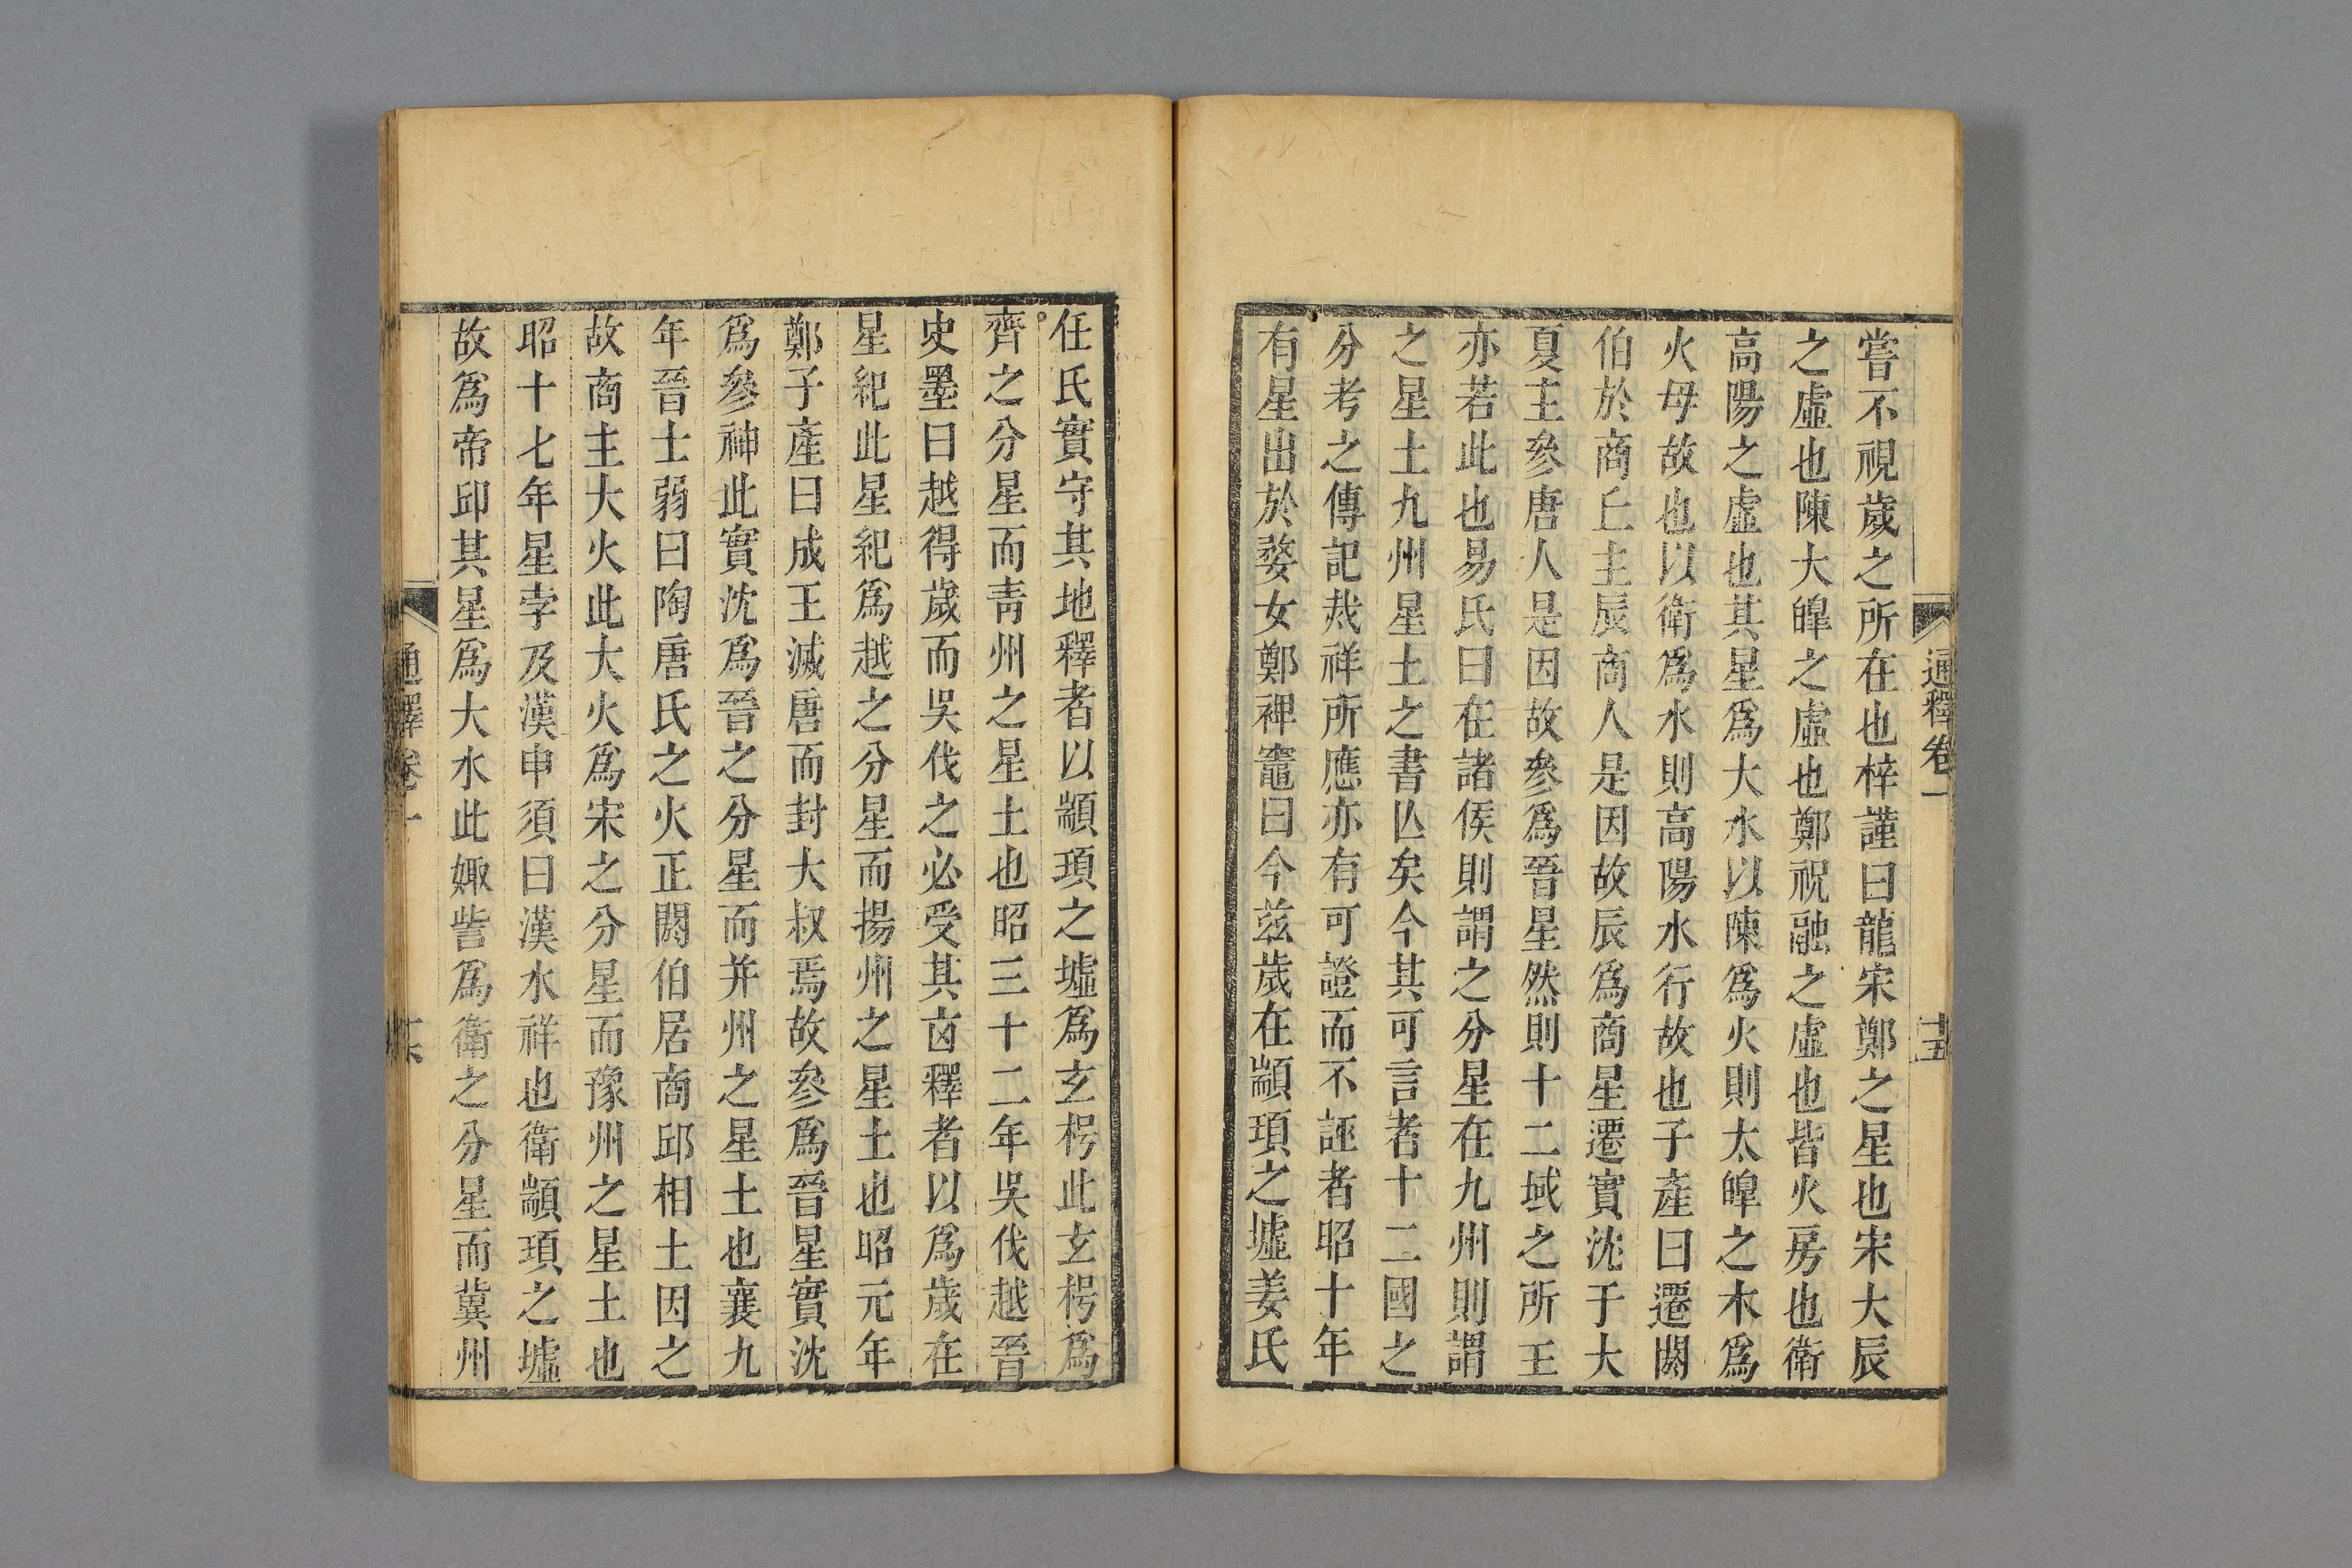 通釋卷一
十五
嘗不視歲之所在也梓謹曰龍宋鄭之星也宋大辰
之虛也陳大皥之虛也鄭祝融之虛也皆火房也衛
高陽之虛也其星爲大水以陳爲火則太皥之木爲
火母故也以衛爲水則高陽水行故也子產曰遷閼
伯於商丘主辰商人是因故辰爲商星遷實沈于大
夏主參唐人是因故參爲晉星然則十二域之所王
亦若此也易氏曰在諸侯則謂之分星在九州則謂
之星土九州星土之書亾矣今其可言者十二國之
分考之傳記烖祥所應亦有可證而不誣者昭十年
有星出於婺女鄭裨竈曰今茲歲在顓頊之墟姜氏
任氏實守其地釋者以顓頊之墟爲玄枵此玄枵爲
齊之分星而靑州之星土也昭三十二年吳伐越晉
史墨曰越得歲而吳伐之必受其凶釋者以爲歲在
星紀此星紀爲越之分星而揚州之星土也昭元年
鄭子產曰成王滅唐而封大叔焉故參爲晉星實沈
爲參神此實沈爲晉之分星而并州之星土也襄九
年晉士弱曰陶唐氏之火正閼伯居商邱相土因之
故商主大火此大火爲宋之分星而豫州之星土也
昭十七年星孛及漢申須曰漢水祥也衛顓頊之墟
故爲帝邱其星爲大水此娵訾爲衛之分星而冀州
通釋卷一
十六